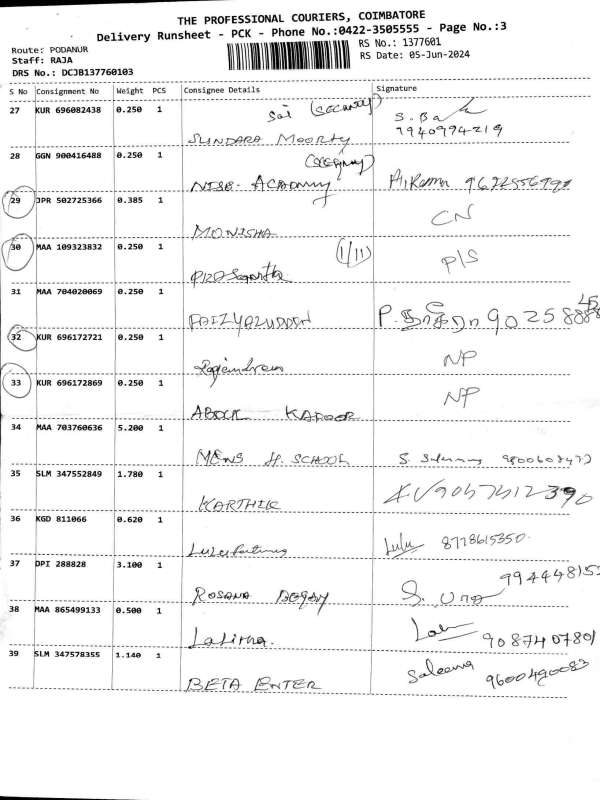 THE PROFESSIONAL COURIERS, COIMBATORE
Delivery Runsheet - PCK - Phone No.:0422-3505555 - Page No.:3
Route: PODANUR
RS No.: 1377601
Staff: RAJA
RS Date: 05-Jun-2024
DRS No.: DCJB137760103
S No Consignment No Weight PCS Consignee Details Signature
27 KUR 696082438 0.250 1
Sai
SUNDARA MOORTY
7940994219
28 GGN 900416488 0.250 1
ACADMY
29 JPR 502725366 0.385 1
MONISHA
CN
30 MAA 109323832 0.250 1
(1/11)
P/S
31 MAA 704020069 0.250 1
FAIZYAZUDDDN
32 KUR 696172721 0.250 1
NP
33 KUR 696172869 0.250 1
ABDUL KAPOOR
NP
34 MAA 703760636 5.200 1
MENS H. SCHOOL
35 SLM 347552849 1.780 1
KARTHIK
36 KGD 811066 0.620 1
Lulu 8778615350
37 DPI 288828 3.100 1
ROSANA BEGAM
S. 994448155
38 MAA 865499133 0.500 1
Lalitha
9087407801
39 SLM 347578355 1.140 1
BETA ENTER
Saleena 9600490083